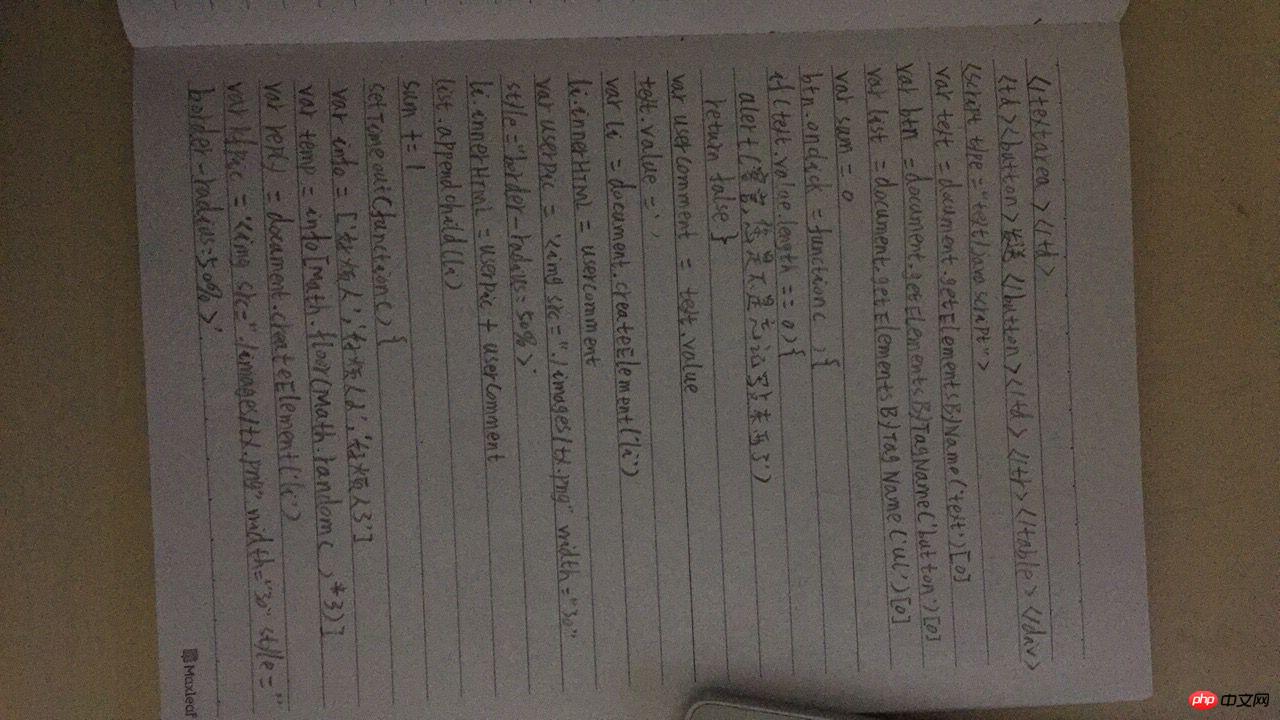 </textarea></td>
<td><button>发送</button></td></tr></table></div>
<script type="text/javascript">
var text = document.getElementsByName('text')[0]
var btn = document.getElementsByTagName('button')[0]
var list = document.getElementsByTagName('ul')[0]
var sum = 0
btn.onclick = function(){
if(text.value.length == 0){
alert('客官,您是不是忘记写东西了')
return false}
var userComment = text.value
text.value = ''
var li = document.createElement('li')
li.innerHtml = usercomment
var userPic = '<img src="./images/tx.png" width="30"
style="border-radius:50%>'
li.innerHtml = userPic + userComment
list.appendchild(li)
sum += 1
setTimeout(function(){
var info = [
var temp = info[Math.floor(Math.random()*3)]
var reply = document.createElement('li')
var kfpic = '<img src="./images/tx.png" width="30" style="
border-radius:50%>'
Maxleaf
php 中文网